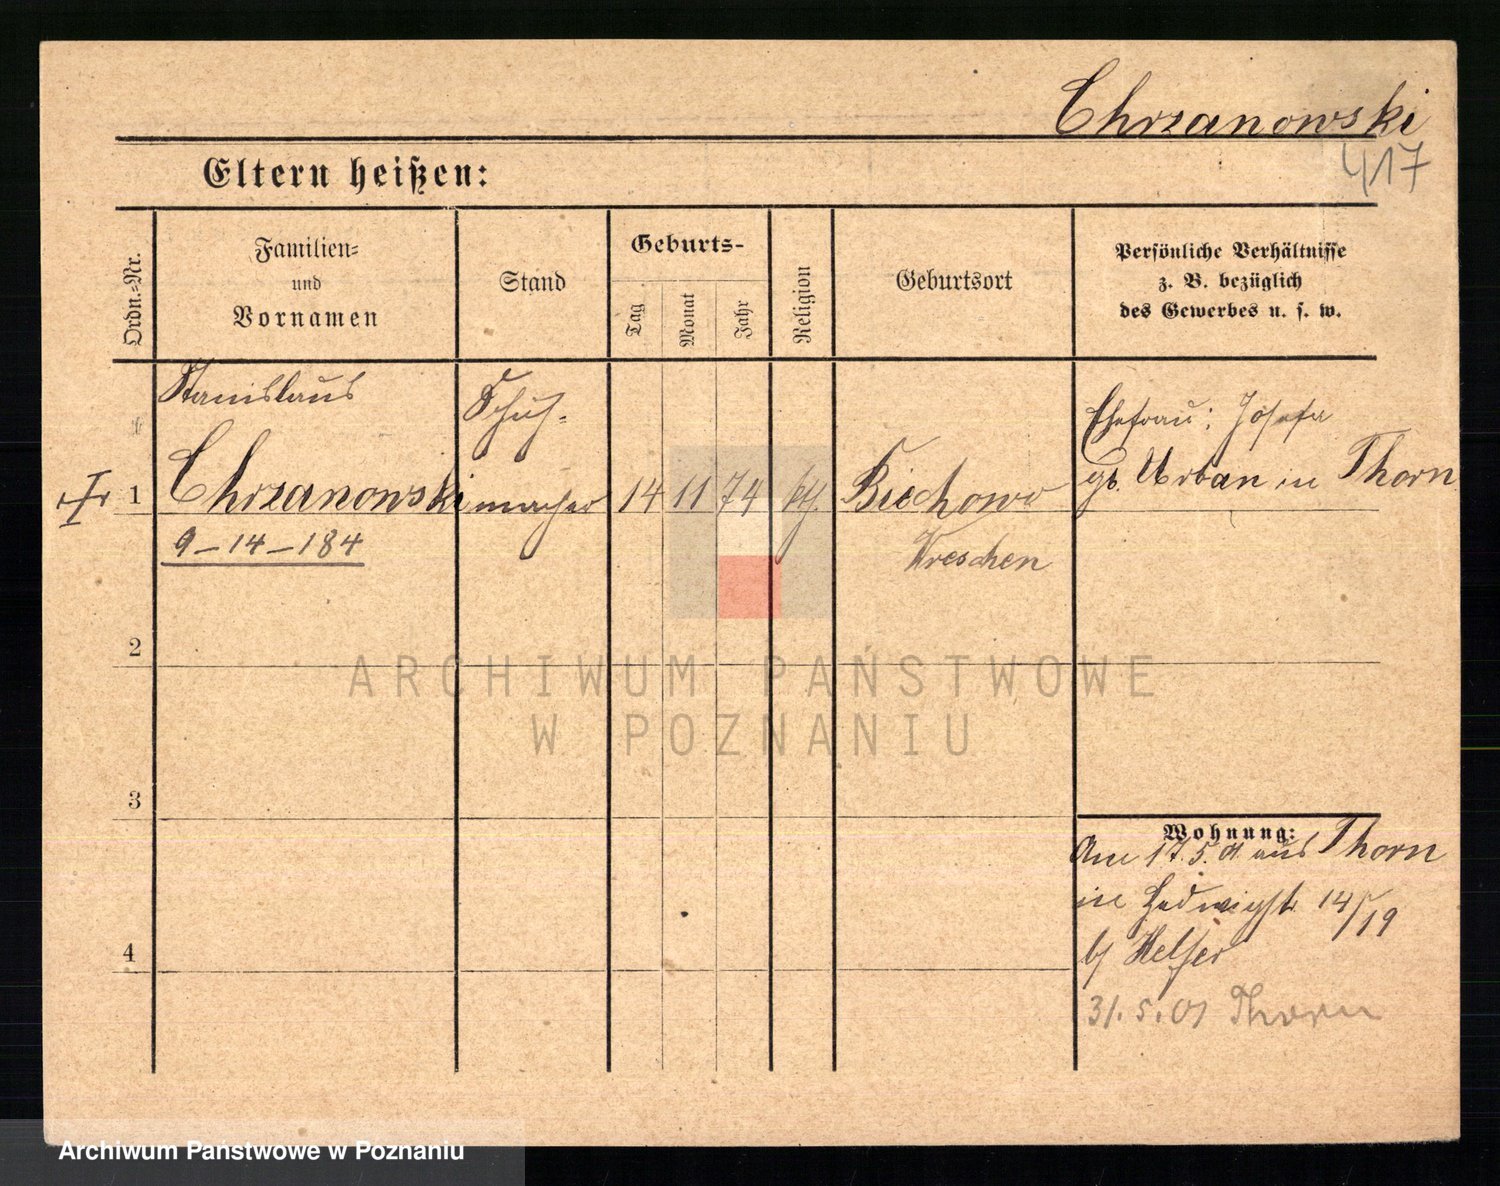 Chrzanowski
417
Eltern heißen:
Ordn.-Nr.
Familien-
und
Vornamen
Stand
Geburts-
Tag
Monat
Jahr
Religion
Geburtsort
Persönliche Verhältnisse
z. B. bezüglich
des Gewerbes u. s. w.
1
Stanislaus
Chrzanowski
9-14-184
Schuh-
macher
14
11
74
kth.
Biechowo
Wreschen
Ehefrau: Josefa
gb. Urban in Thorn
2
3
4
Wohnung:
Am 17.5.01 aus Thorn
in Hedwigstr 14/19
b/
31.5.01 Thorn
ARCHIWUM PAŃSTWOWE
W POZNANIU
Archiwum Państwowe w Poznaniu